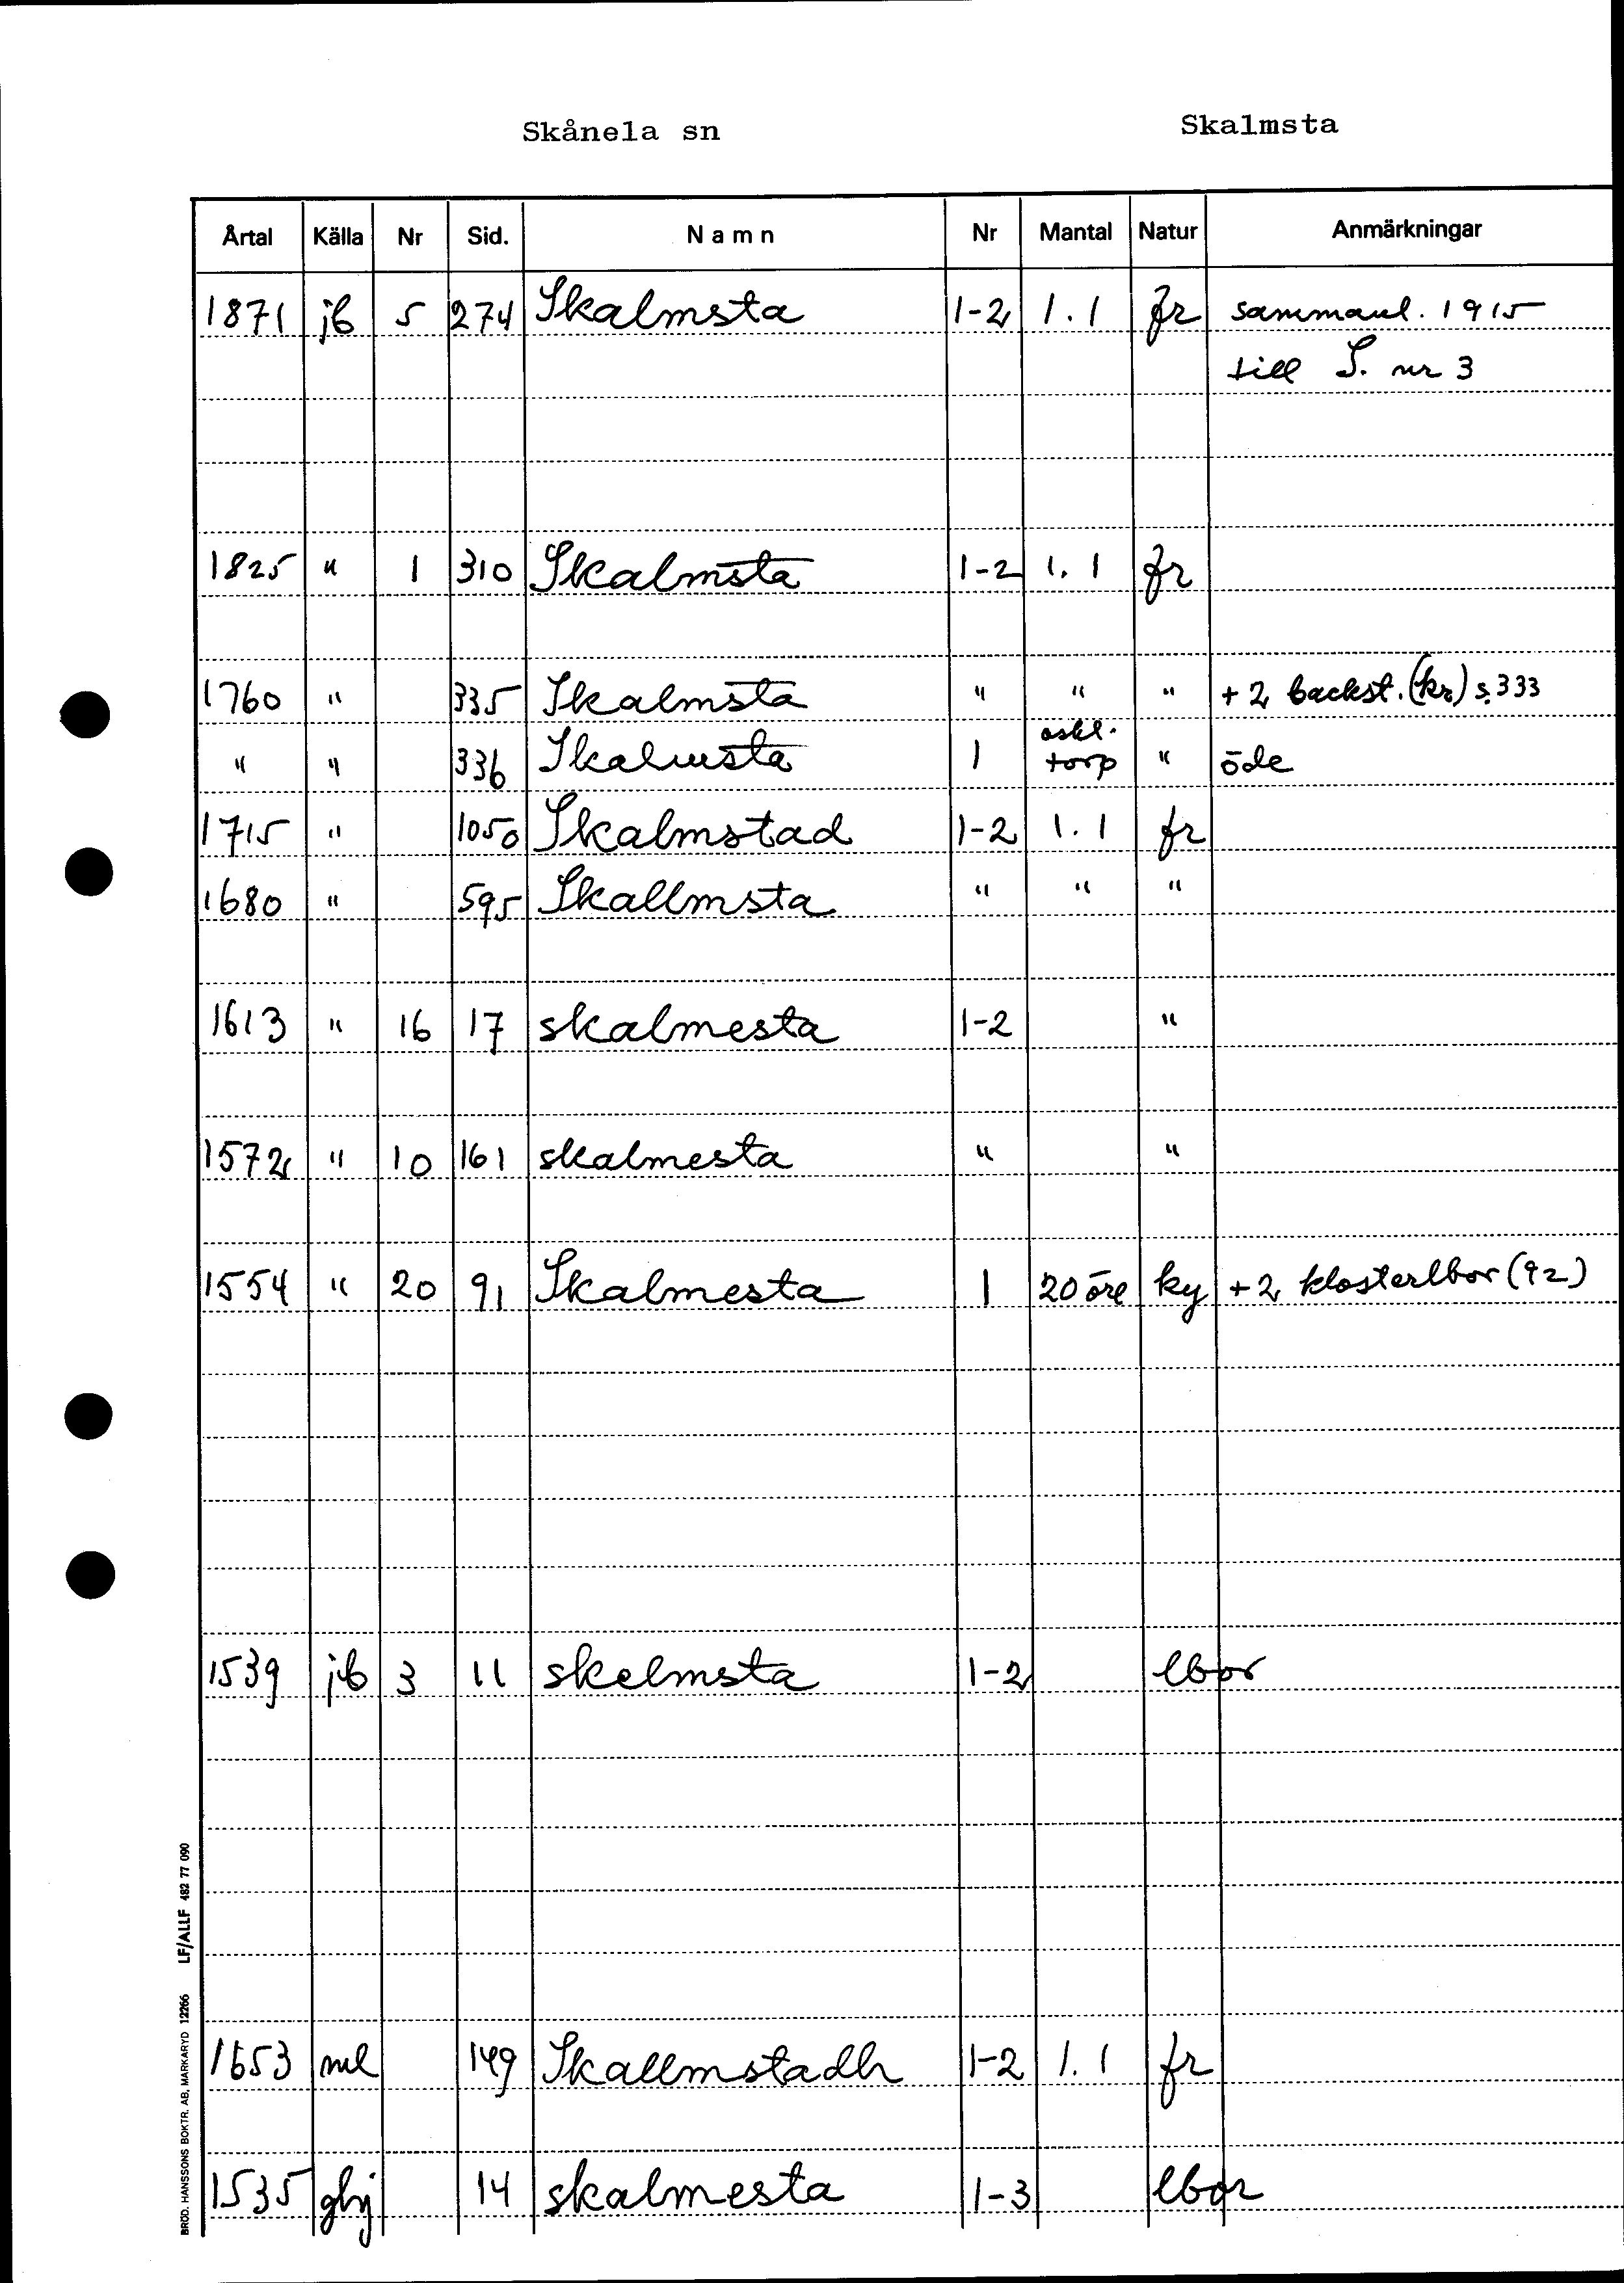 Skånela sn Skalmsta
Årtal Källa Nr Sid. Namn Nr Mantal Natur Anmärkningar
1871 jb 5 274 Skalmsta 1-2 1.1 fr sammanl. 1915
till S. nr 3
1825 " 1 310 Skalmsta 1-2 1.1 fr
1760 " 335 Skalmsta " " " + 2 backst. (kr) s. 333
" " 336 Skalmsta 1 oskl. torp " öde
1715 " 1050 Skalmstad 1-2 1.1 fr
1680 " 595 Skallmsta " " "
1613 " 16 17 skalmesta 1-2 "
1572 " 10 161 skalmesta " "
1554 " 20 91 Skalmesta 1 20 öre ky + 2 klosterlbor (92)
1539 jb 3 11 skelmsta 1-2 lbor
1653 ml 149 Skallmstadh 1-2 1.1 fr
1535 ghj 14 skalmesta 1-3 lbor
BRÖD. HANSSONS BOKTR. AB, MARKARYD 12266 LF/ALLF 482 77 090